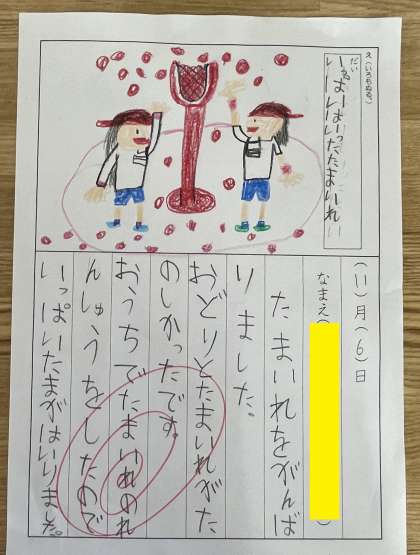 え（いろもぬる。）
だい
いっぱいはいったたまいれ
（11）月（6）日
なまえ（ ）
たまいれをがんば
りました。
おどりとたまいれがた
のしかったです。
おうちでたまいれのれ
んしゅうをしたので
いっぱいたまがはいりました。